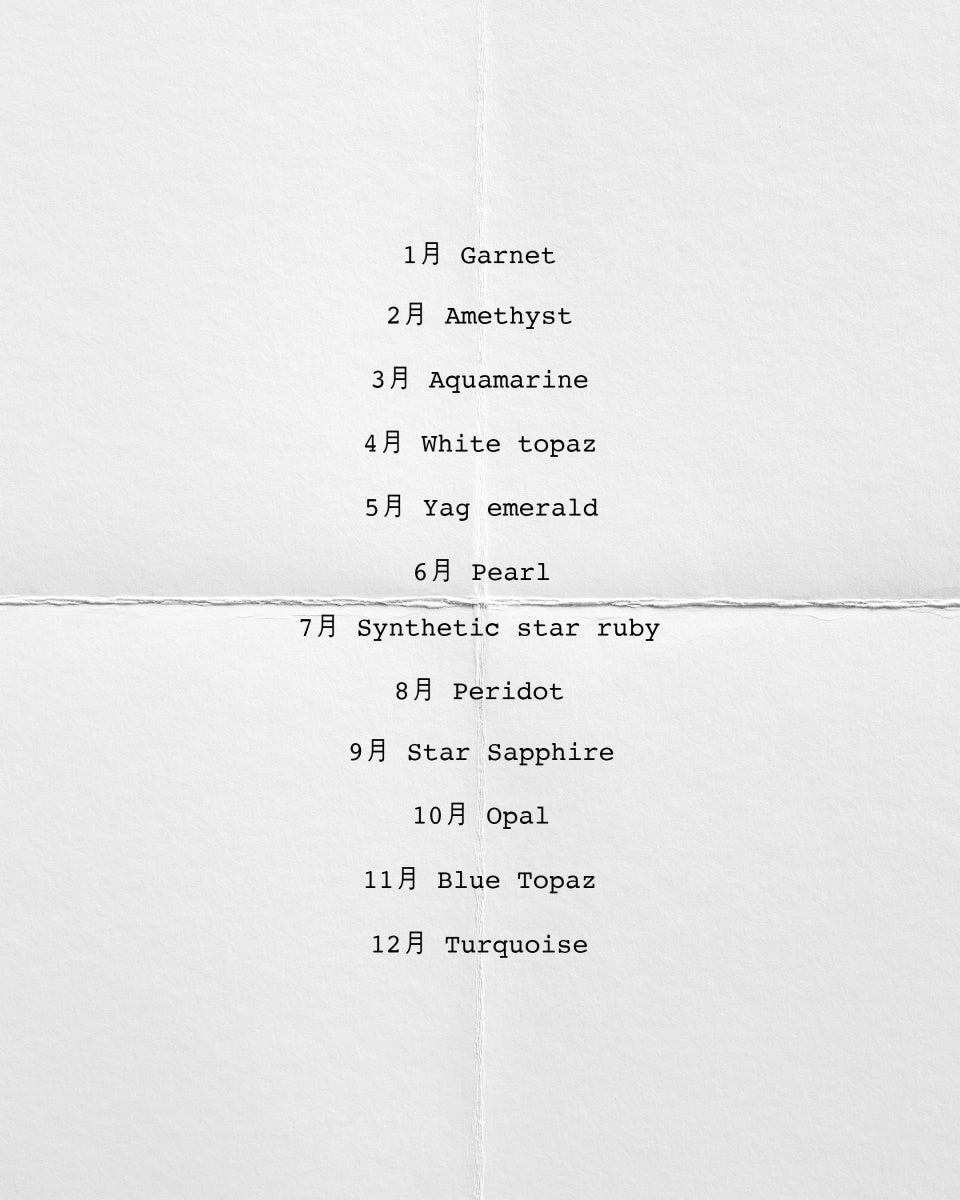 1月 Garnet
2月 Amethyst
3月 Aquamarine
4月 White topaz
5月 Yag emerald
6月 Pearl
7月 Synthetic star ruby
8月 Peridot
9月 Star Sapphire
10月 Opal
11月 Blue Topaz
12月 Turquoise